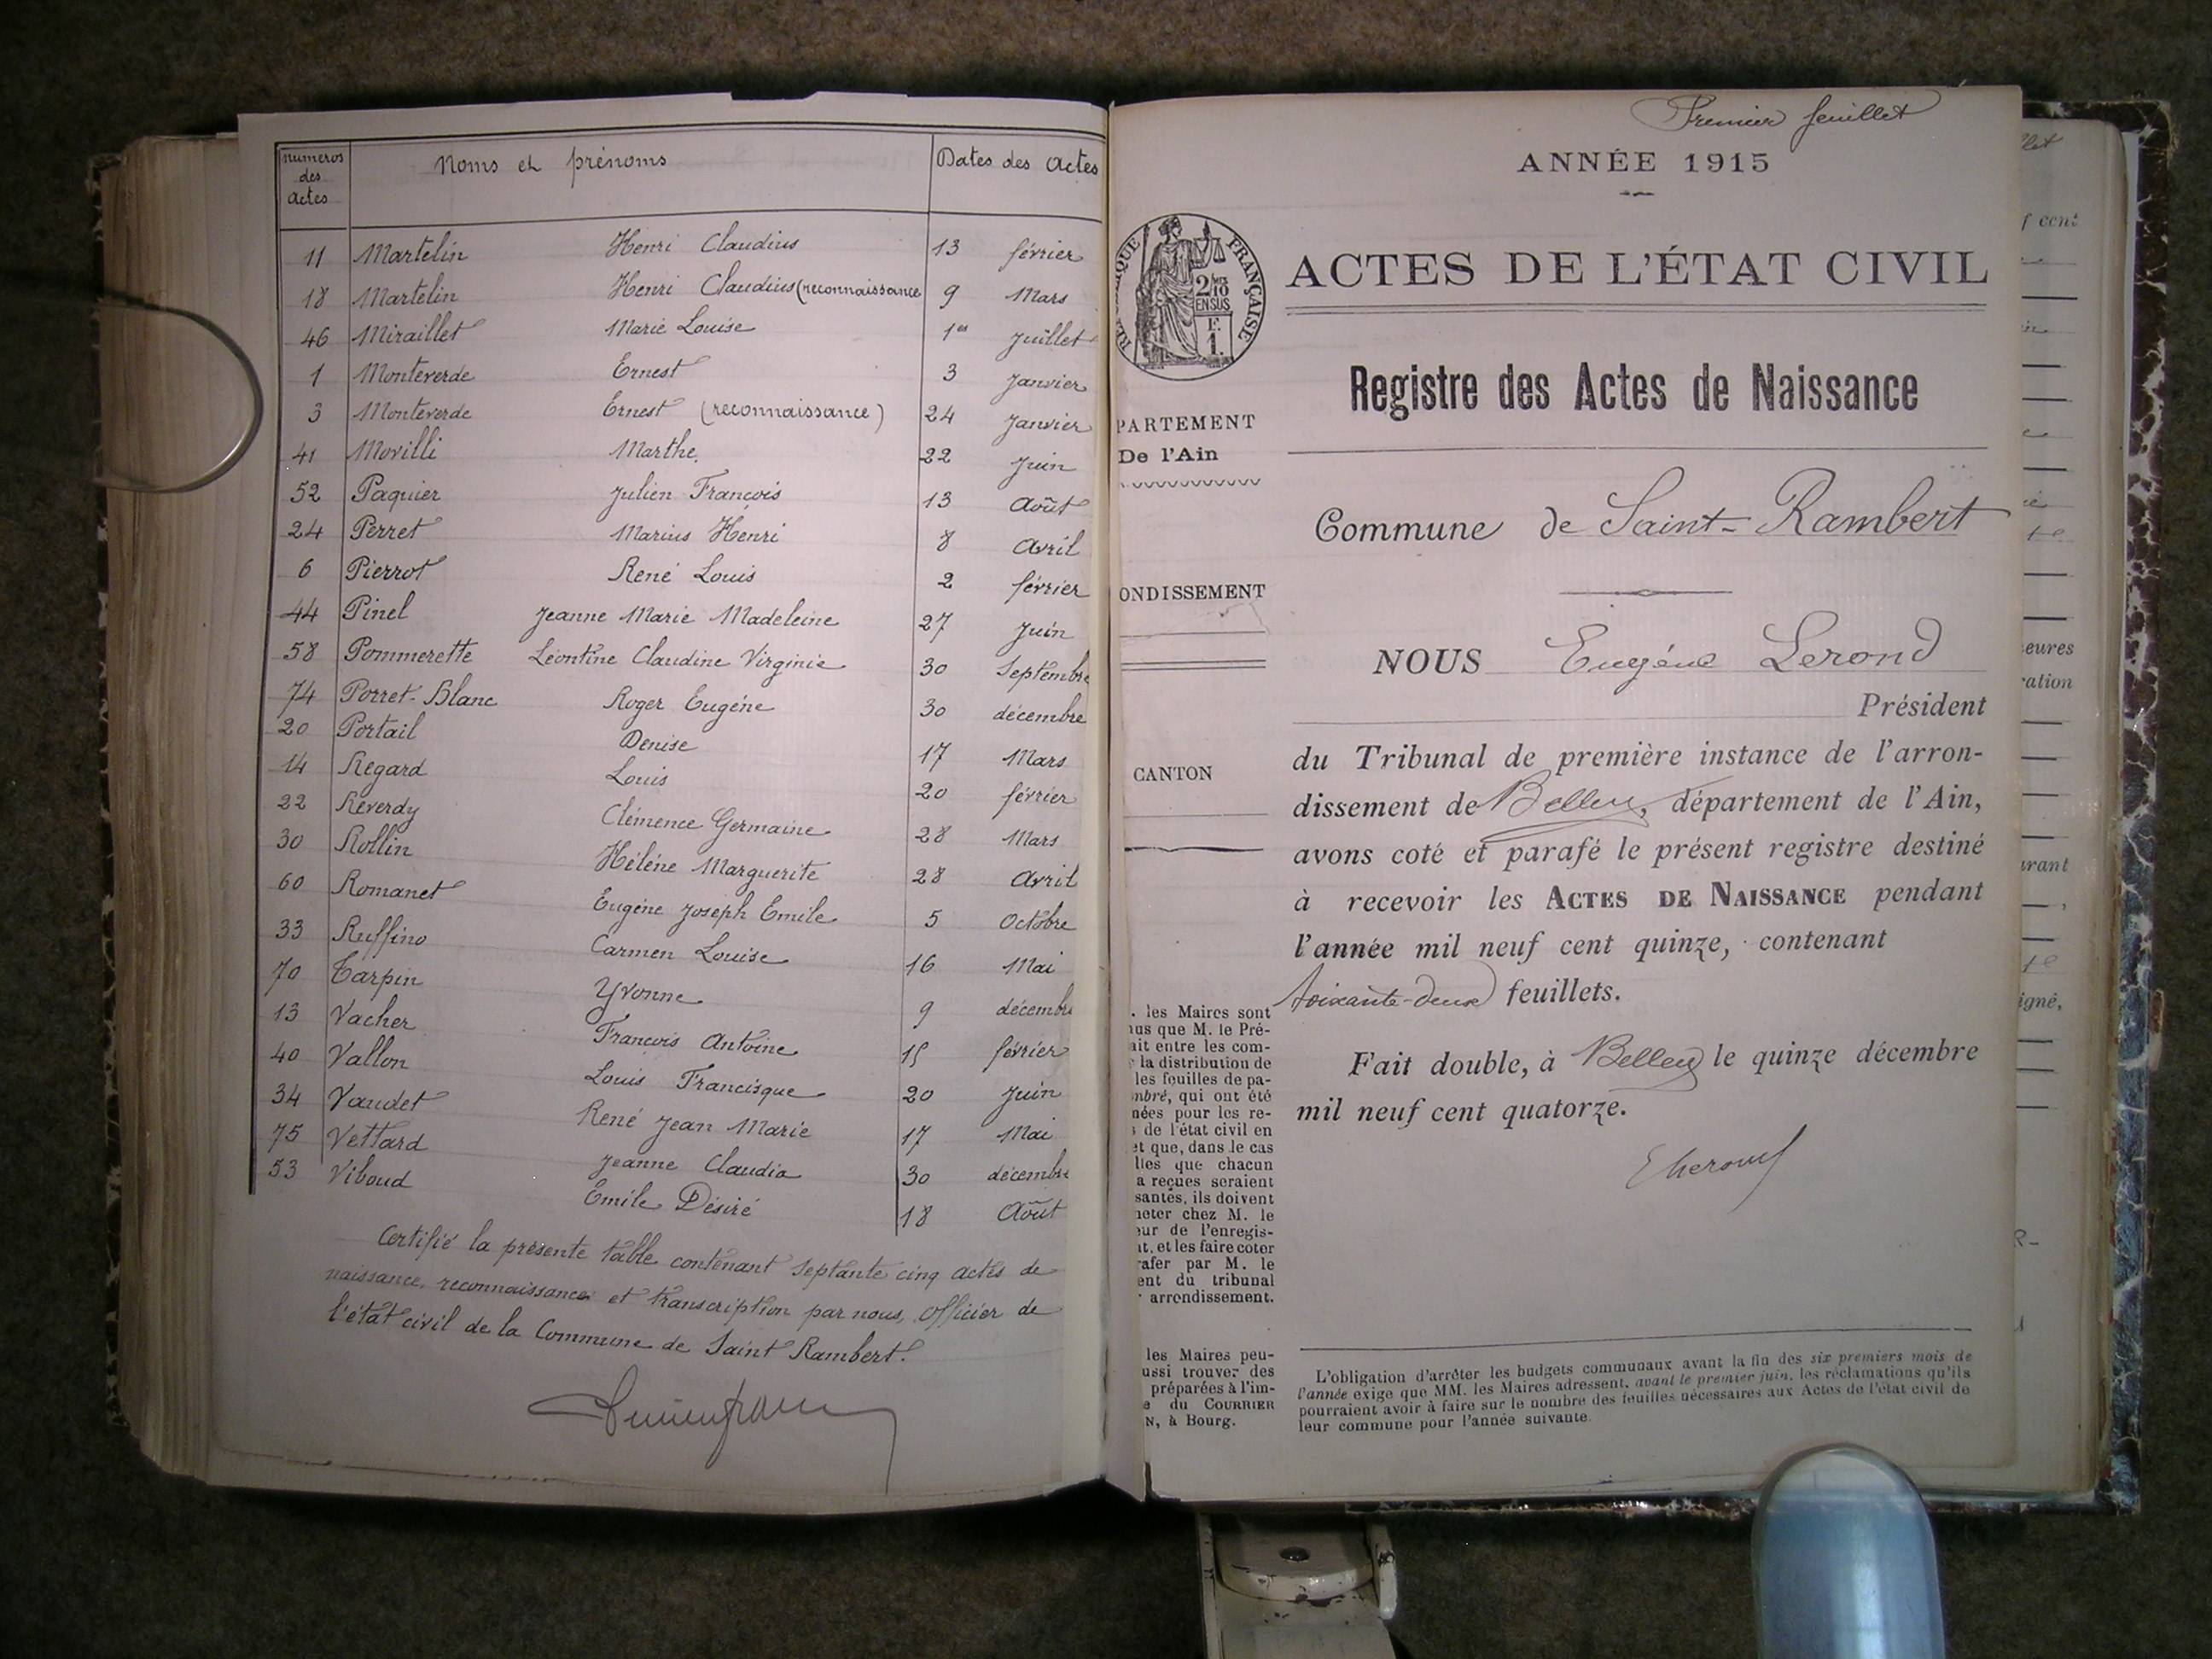 numeros des actes Noms et prénoms Dates des actes
11 Martelin Henri Claudius 13 février
18 Martelin Henri Claudius (reconnaissance 9 Mars
46 Miraillet Marie Louise 1er Juillet
1 Monteverde Ernest 3 Janvier
3 Monteverde Ernest (reconnaissance) 24 Janvier
41 Movilli Marthe 22 Juin
52 Paquier Julien François 13 Août
24 Perret Marius Henri 8 Avril
6 Pierrot René Louis 2 février
44 Pinel Jeanne Marie Madeleine 27 Juin
58 Pommerette Léontine Claudine Virginie 30 Septembre
74 Porret-Blanc Roger Eugéne 30 décembre
20 Portail Denise 17 Mars
14 Regard Louis 20 février
22 Reverdy Clémence Germaine 28 Mars
30 Rollin Hélène Marguerite 28 Avril
60 Romanet Eugène Joseph Emile 5 Octobre
33 Ruffino Carmen Louise 16 Mai
70 Tarpin Yvonne 9 décembre
13 Vacher François Antoine 15 février
40 Vallon Louis Francisque 20 Juin
34 Vaudet René Jean Marie 17 Mai
75 Vettard Jeanne Claudia 30 décembre
53 Viboud Emile Désiré 18 Août
Certifié la présente table contenant septante cinq actes de
naissance, reconnaissances et transcription par nous, Officier de
l'état civil de la Commune de Saint Rambert.
Premier feuillet
ANNÉE 1915
RÉPUBLIQUE FRANÇAISE
2/10
EN SUS
E.
1.
ACTES DE L'ÉTAT CIVIL
Registre des Actes de Naissance
PARTEMENT
De l'Ain
Commune de Saint-Rambert
ONDISSEMENT
NOUS Eugéne Lerond
Président
CANTON
du Tribunal de première instance de l'arron-
dissement de Belley, département de l'Ain,
avons coté et parafé le présent registre destiné
à recevoir les ACTES DE NAISSANCE pendant
l'année mil neuf cent quinze, contenant
soixante-deux feuillets.
Fait double, à Belley le quinze décembre
mil neuf cent quatorze.
. les Maires sont
us que M. le Pré-
ait entre les com-
la distribution de
les feuilles de pa-
mbré, qui ont été
nées pour les re-
s de l'état civil en
et que, dans le cas
lles que chacun
a reçues seraient
santes, ils doivent
heter chez M. le
eur de l'enregis-
nt, et les faire coter
rafer par M. le
ent du tribunal
arrondissement.
les Maires peu-
ussi trouver des
préparées à l'im-
e du COURRIER
N, à Bourg.
L'obligation d'arrêter les budgets communaux avant la fin des six premiers mois de
l'année exige que MM. les Maires adressent, avant le premier juin, les réclamations qu'ils
pourraient avoir à faire sur le nombre des feuilles nécessaires aux Actes de l'état civil de
leur commune pour l'année suivante.
llet
f cent
eures
ration
urant
igné,